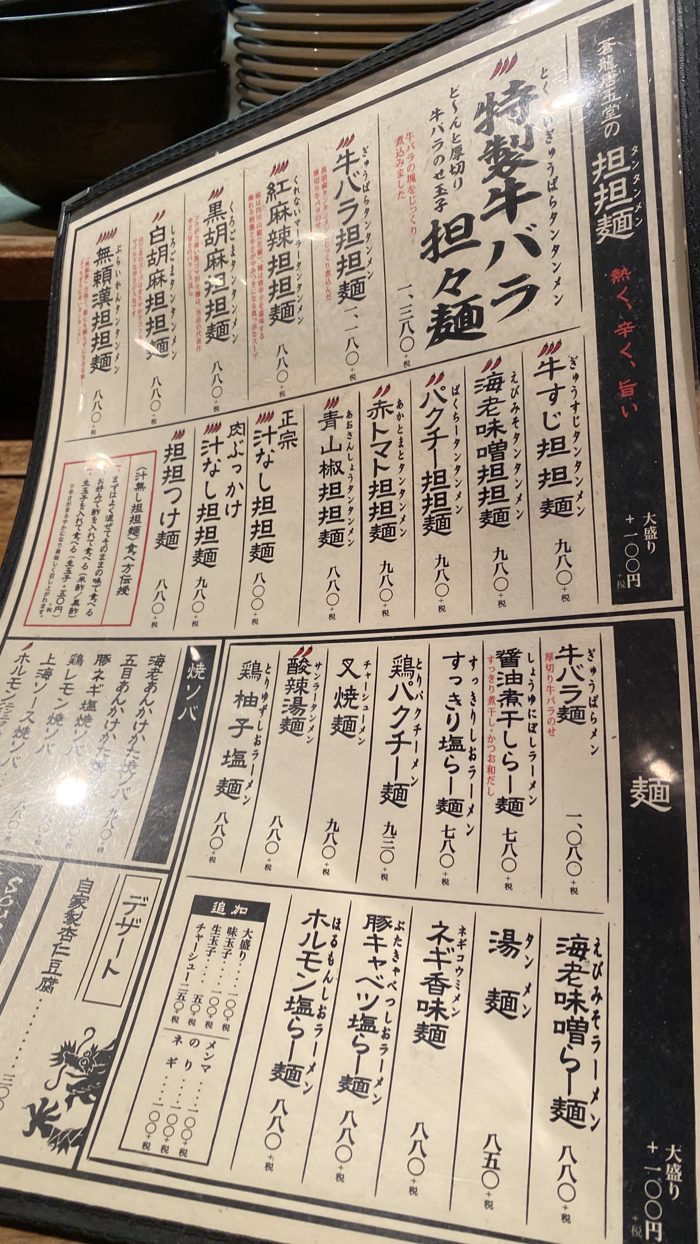 蒼龍唐玉堂の 担担麺
タンタンメン
熱く、辛く、旨い
大盛り
+一〇〇円
+税
特製牛バラ担々麺
ど〜んと厚切り
牛バラのせ玉子
牛バラの塊をじっくり
煮込みました
一、三八〇+税
ぎゅうばらタンタンメン
牛バラ担担麺
一、一八〇+税
くれないマーラータンタンメン
紅麻辣担担麺
八八〇+税
くろごまタンタンメン
黒胡麻担担麺
八八〇+税
しろごまタンタンメン
白胡麻担担麺
八八〇+税
ぶらいかんタンタンメン
無頼漢担担麺
八八〇+税
ぎゅうすじタンタンメン
牛すじ担担麺
九八〇+税
えびみそタンタンメン
海老味噌担担麺
九八〇+税
ぱくちータンタンメン
パクチー担担麺
九八〇+税
あかとまとタンタンメン
赤トマト担担麺
九八〇+税
あおさんしょうタンタンメン
青山椒担担麺
八八〇+税
正宗
汁なし担担麺
八〇〇+税
肉ぶっかけ
汁なし担担麺
九八〇+税
担担つけ麺
八八〇+税
〈汁無し担担麺〉食べ方伝授
一、まずはよく混ぜてそのままの味で食べる
お好みで酢を入れて食べる(米酢/黒酢)
生玉子を入れて食べる(生玉子+五〇円)
麺
大盛り
+一〇〇円
+税
ぎゅうばらメン
牛バラ麺
厚切り牛バラのせ
一、〇八〇+税
しょうゆにぼしラーメン
醤油煮干しらー麺
すっきり煮干し・かつお和だし
七八〇+税
すっきりしおラーメン
すっきり塩らー麺
七八〇+税
とりパクチーメン
鶏パクチー麺
九三〇+税
チャーシューメン
叉焼麺
九八〇+税
サンラータンメン
酸辣湯麺
八八〇+税
とりゆずしおラーメン
鶏柚子塩麺
八八〇+税
えびみそラーメン
海老味噌らー麺
八八〇+税
タンメン
湯麺
八五〇+税
ネギコウミメン
ネギ香味麺
八八〇+税
ぶたきゃべつしおラーメン
豚キャベツ塩らー麺
八八〇+税
ほるもんしおラーメン
ホルモン塩らー麺
八八〇+税
追加
大盛り‥一〇〇+税
味玉子‥一〇〇+税
生玉子‥五〇+税
チャーシュー二五〇+税
メンマ‥一〇〇+税
のり‥一〇〇+税
ネギ‥一〇〇+税
焼ソバ
海老あんかけかた焼ソバ
五目あんかけかた焼ソバ
豚ネギ塩焼ソバ
鶏レモン焼ソバ
上海ソース焼ソバ
デザート
自家製杏仁豆腐
三〇〇